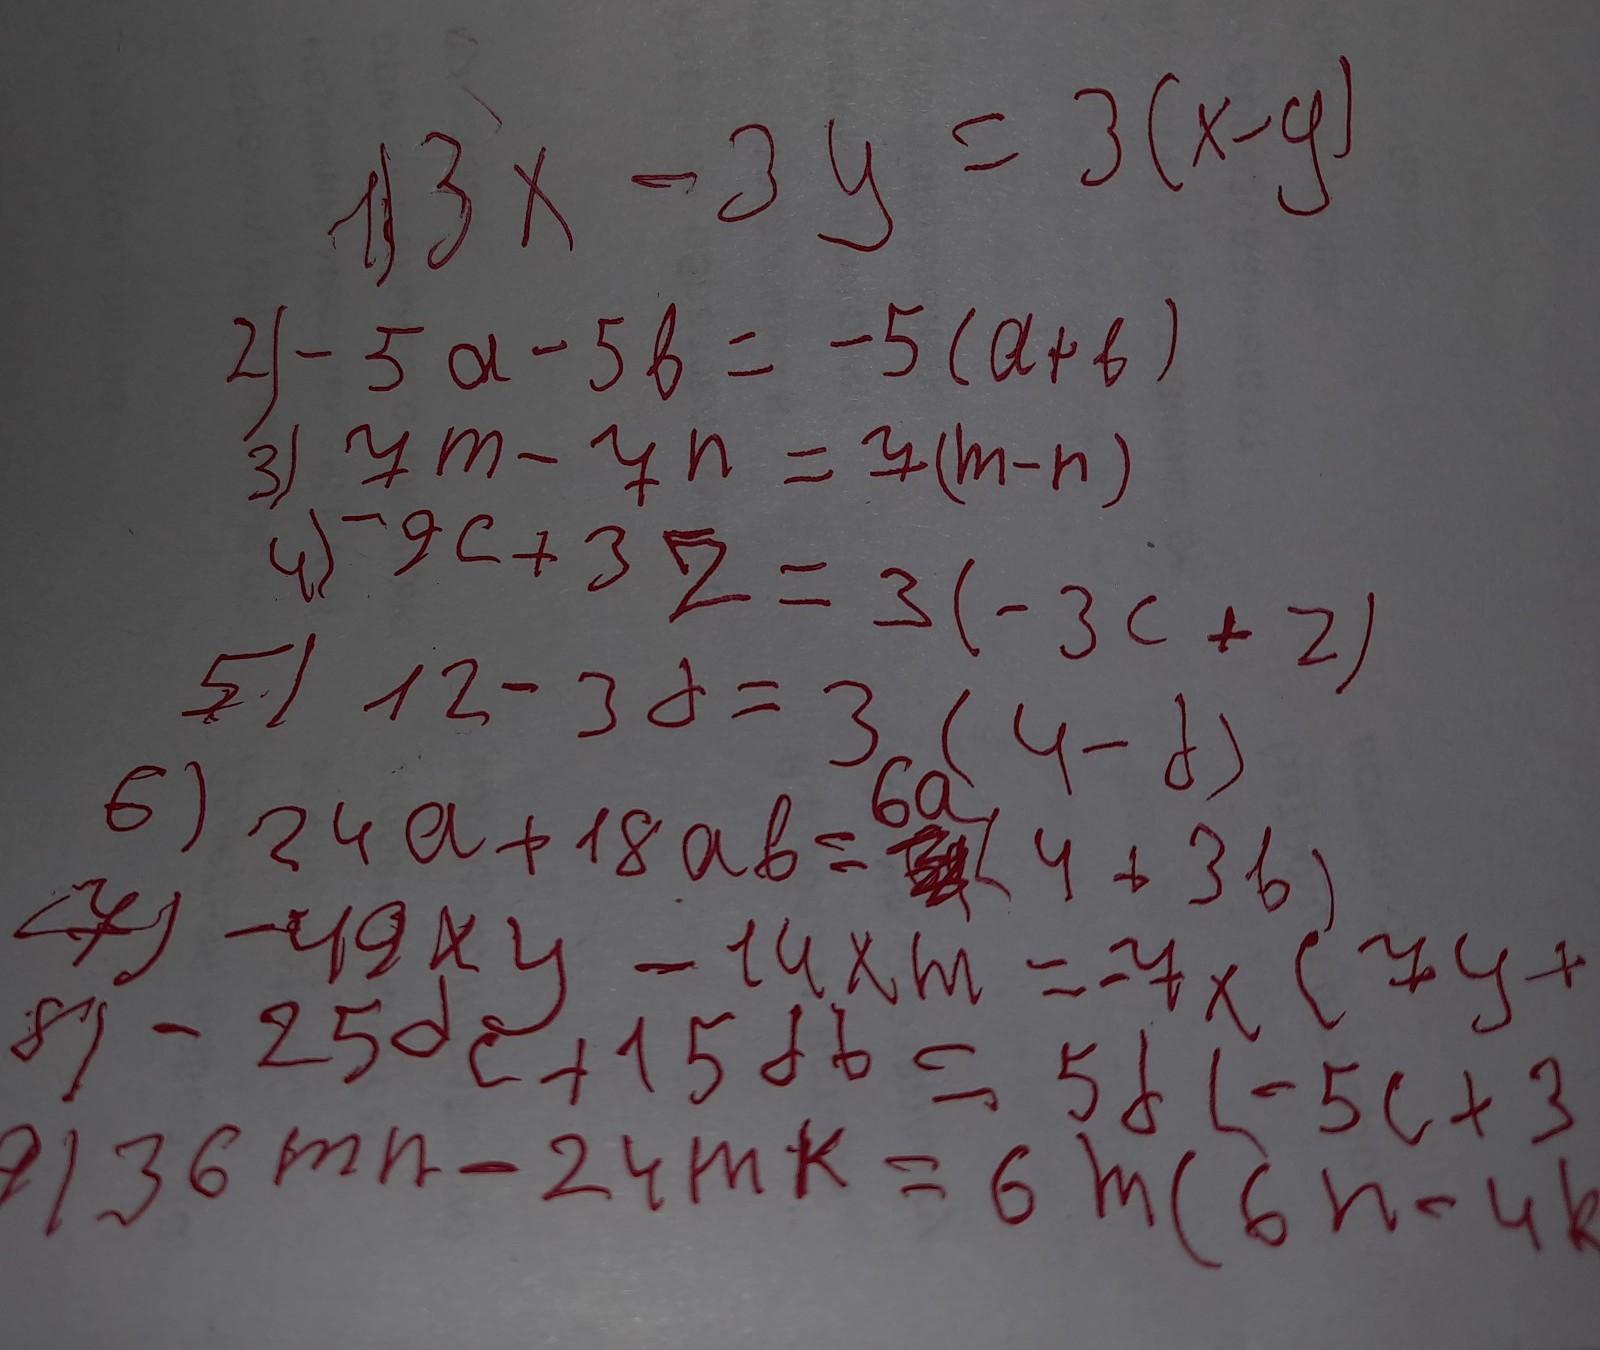 1) 3x - 3y = 3(x-y)
2) - 5a - 5b = -5(a+b)
3) 7m - 7n = 7(m-n)
4) -9c + 3z = 3(-3c + z)
5) 12 - 3d = 3(4-d)
6) 24a + 18ab = 6a(4 + 3b)
7) -49xy - 14xm = -7x(7y+
8) - 25dc + 15db = 5d(-5c+3
9) 36mn - 24mk = 6m(6n-4k